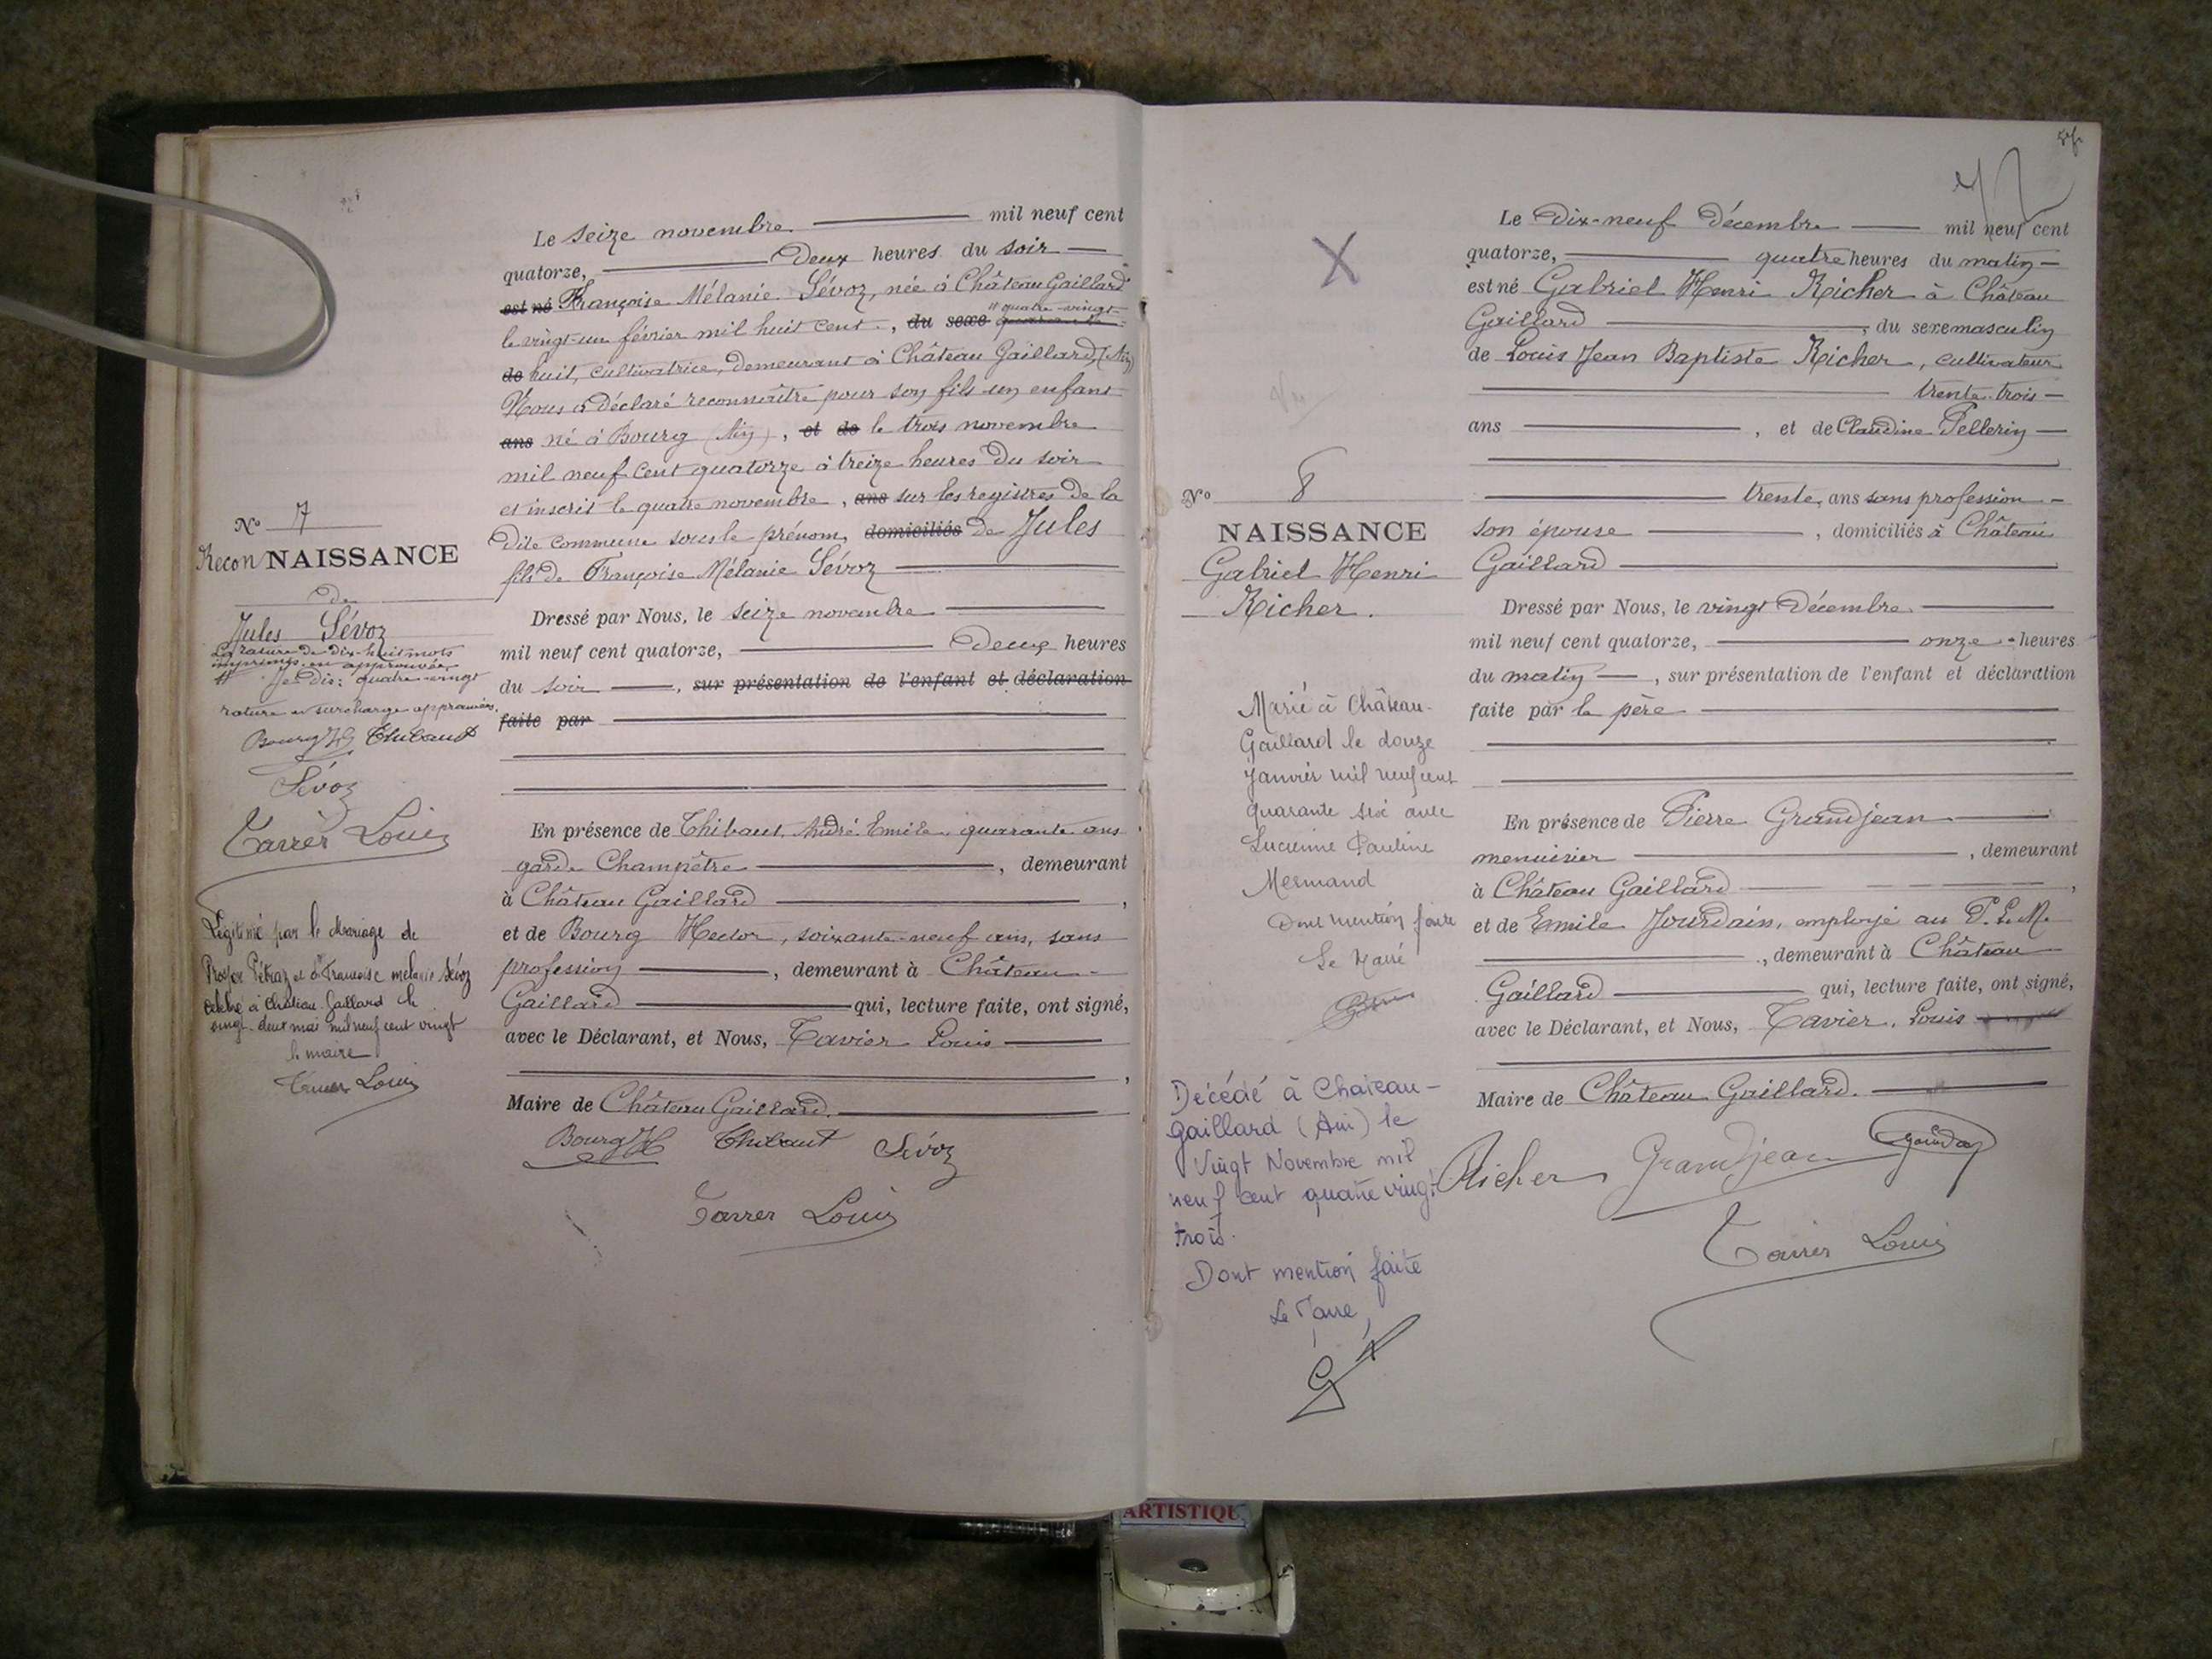 Le seize novembre. mil neuf cent
quatorze, Deux heures du soir
est né Françoise Mélanie Sévoz, née à Château Gaillard
# quatre-vingt-
le vingt-un février mil huit cent, du sexe
de huit, cultivatrice, demeurant à Château Gaillard, (Ain)
Nous a déclaré reconnaître pour son fils un enfant
ans né à Bourg (Ain), et de le trois novembre
mil neuf cent quatorze à treize heures du soir
et inscrit le quatre novembre, ans sur les registres de la
dite commune sous le prénom, domiciliés de Jules
fils de Françoise Mélanie Sévoz
Dressé par Nous, le seize novembre
mil neuf cent quatorze, Deux heures
du soir, sur présentation de l'enfant et déclaration
faite par
En présence de Thibaut, André Emile, quarante ans
garde Champêtre, demeurant
à Château Gaillard,
et de Bourg Hector, soixante-neuf ans, sans
profession, demeurant à Château-
Gaillard qui, lecture faite, ont signé,
avec le Déclarant, et Nous, Tavier Louis
,
Maire de Château Gaillard.
Bourg H Thibaut Sévoz
Tavier Louis
No 7
Recon NAISSANCE
de
Jules Sévoz
La rature de dix-huit mots
imprimés est approuvée
# Je dis: quatre-vingt
rature et surcharge approuvées.
Bourg H Thibaut
Sévoz
Tavier Louis
Légitimé par le mariage de
Prosper Pétraz et de Françoise mélanie Sévoz
célébré à Château-Gaillard le
vingt-deux mai mil neuf cent vingt
le maire
Tavier Louis
Le Dix-neuf Décembre mil neuf cent
quatorze, quatre heures du matin
est né Gabriel Henri Richer à Château
Gaillard, du sexe masculin
de Louis Jean Baptiste Richer, cultivateur
trente-trois
ans, et de Claudine Pellerin
trente, ans sans profession
son épouse, domiciliés à Château
Gaillard
Dressé par Nous, le vingt Décembre
mil neuf cent quatorze, onze heures
du matin, sur présentation de l'enfant et déclaration
faite par le père
En présence de Pierre Grandjean
menuisier, demeurant
à Château Gaillard,
et de Emile Jourdain, employé au P.L.M.
, demeurant à Château
Gaillard qui, lecture faite, ont signé,
avec le Déclarant, et Nous, Tavier, Louis
Maire de Château Gaillard.
Richer Grandjean
Tavier Louis
X
No 8
NAISSANCE
Gabriel Henri
Richer.
Marié à Château-
Gaillard le douze
Janvier mil neuf cent
quarante six avec
Lucienne Pauline
Mermand
Dont mention faite
Le Maire
Décédé à Chateau-
gaillard (Ain) le
Vingt Novembre mil
neuf cent quatre vingt
trois.
Dont mention faite
Le Maire,
ARTISTIQU